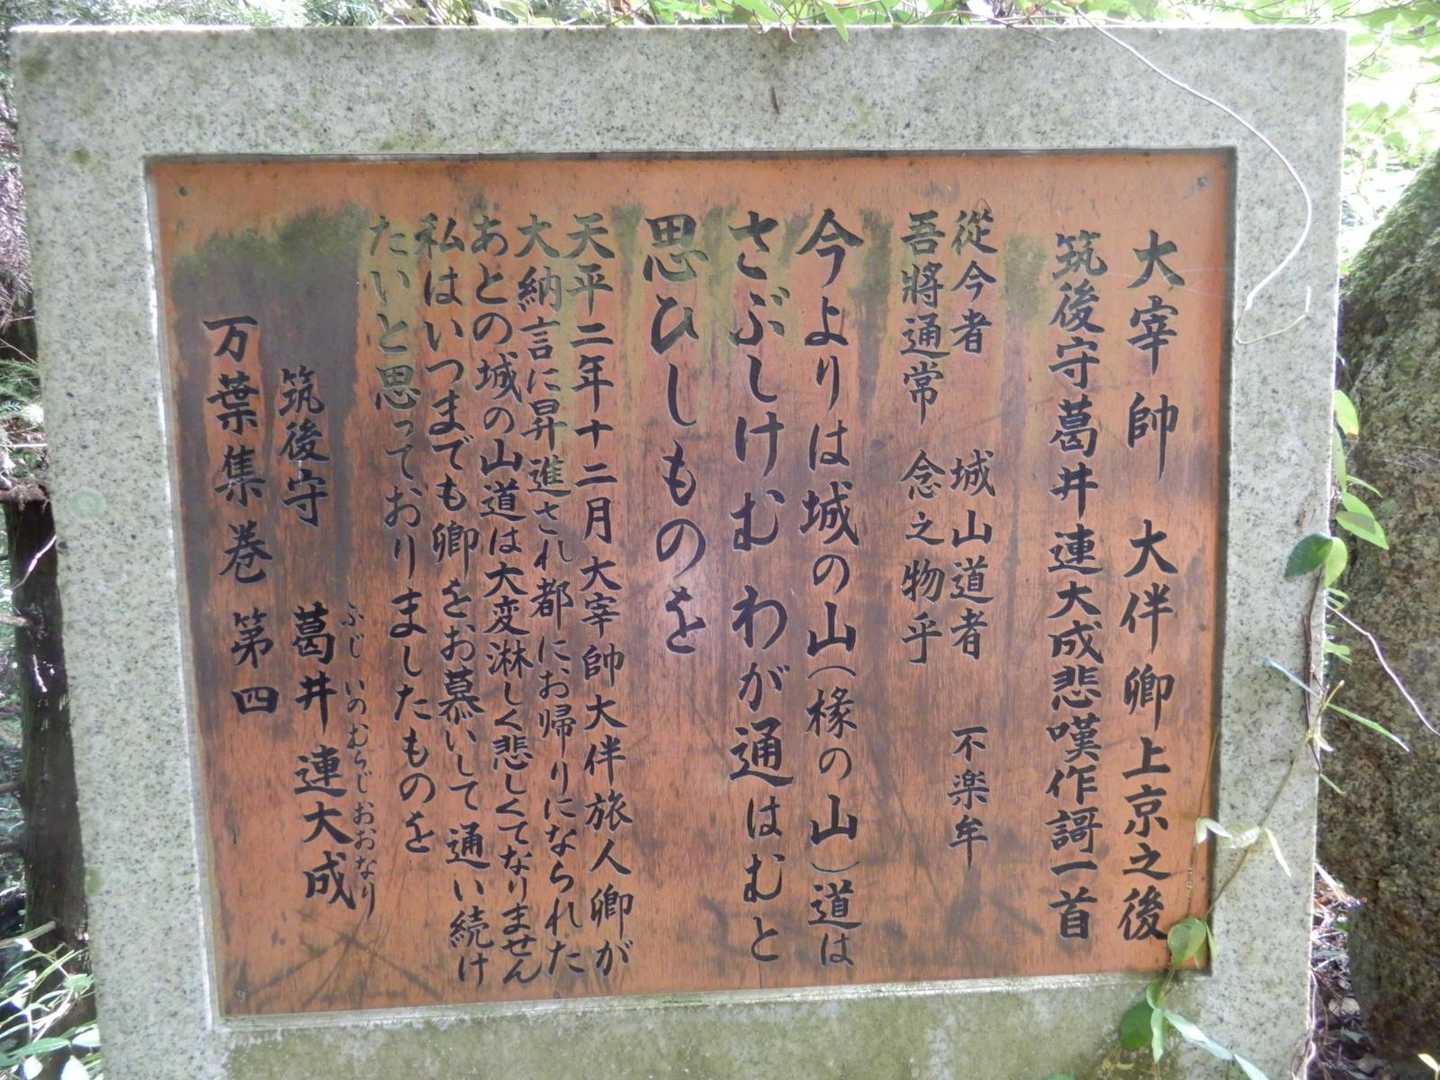 大宰帥 大伴卿上京之後
筑後守葛井連大成悲嘆作謌一首
從今者 城山道者 不楽牟
吾將通常 念之物乎
今よりは城の山(椽の山)道は
さぶしけむ わが通はむと
思ひしものを
天平二年十二月大宰帥大伴旅人卿が
大納言に昇進され都に、お帰りになられた
あとの城の山道は大変淋しく悲しくてなりません
私はいつまでも卿をお慕いして通い続け
たいと思っておりましたものを
筑後守 葛井連大成
ふじ いのむらじおおなり
万葉集巻 第四